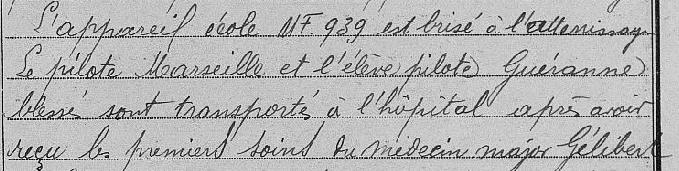 L'appareil école MF 939 est brisé à l'attenissage
Le pilote Marseille et l'élève pilote Guéranne
blessé sont transportés à l'hôpital après avoir
reçu les premiers soins du médecin major Gélibert